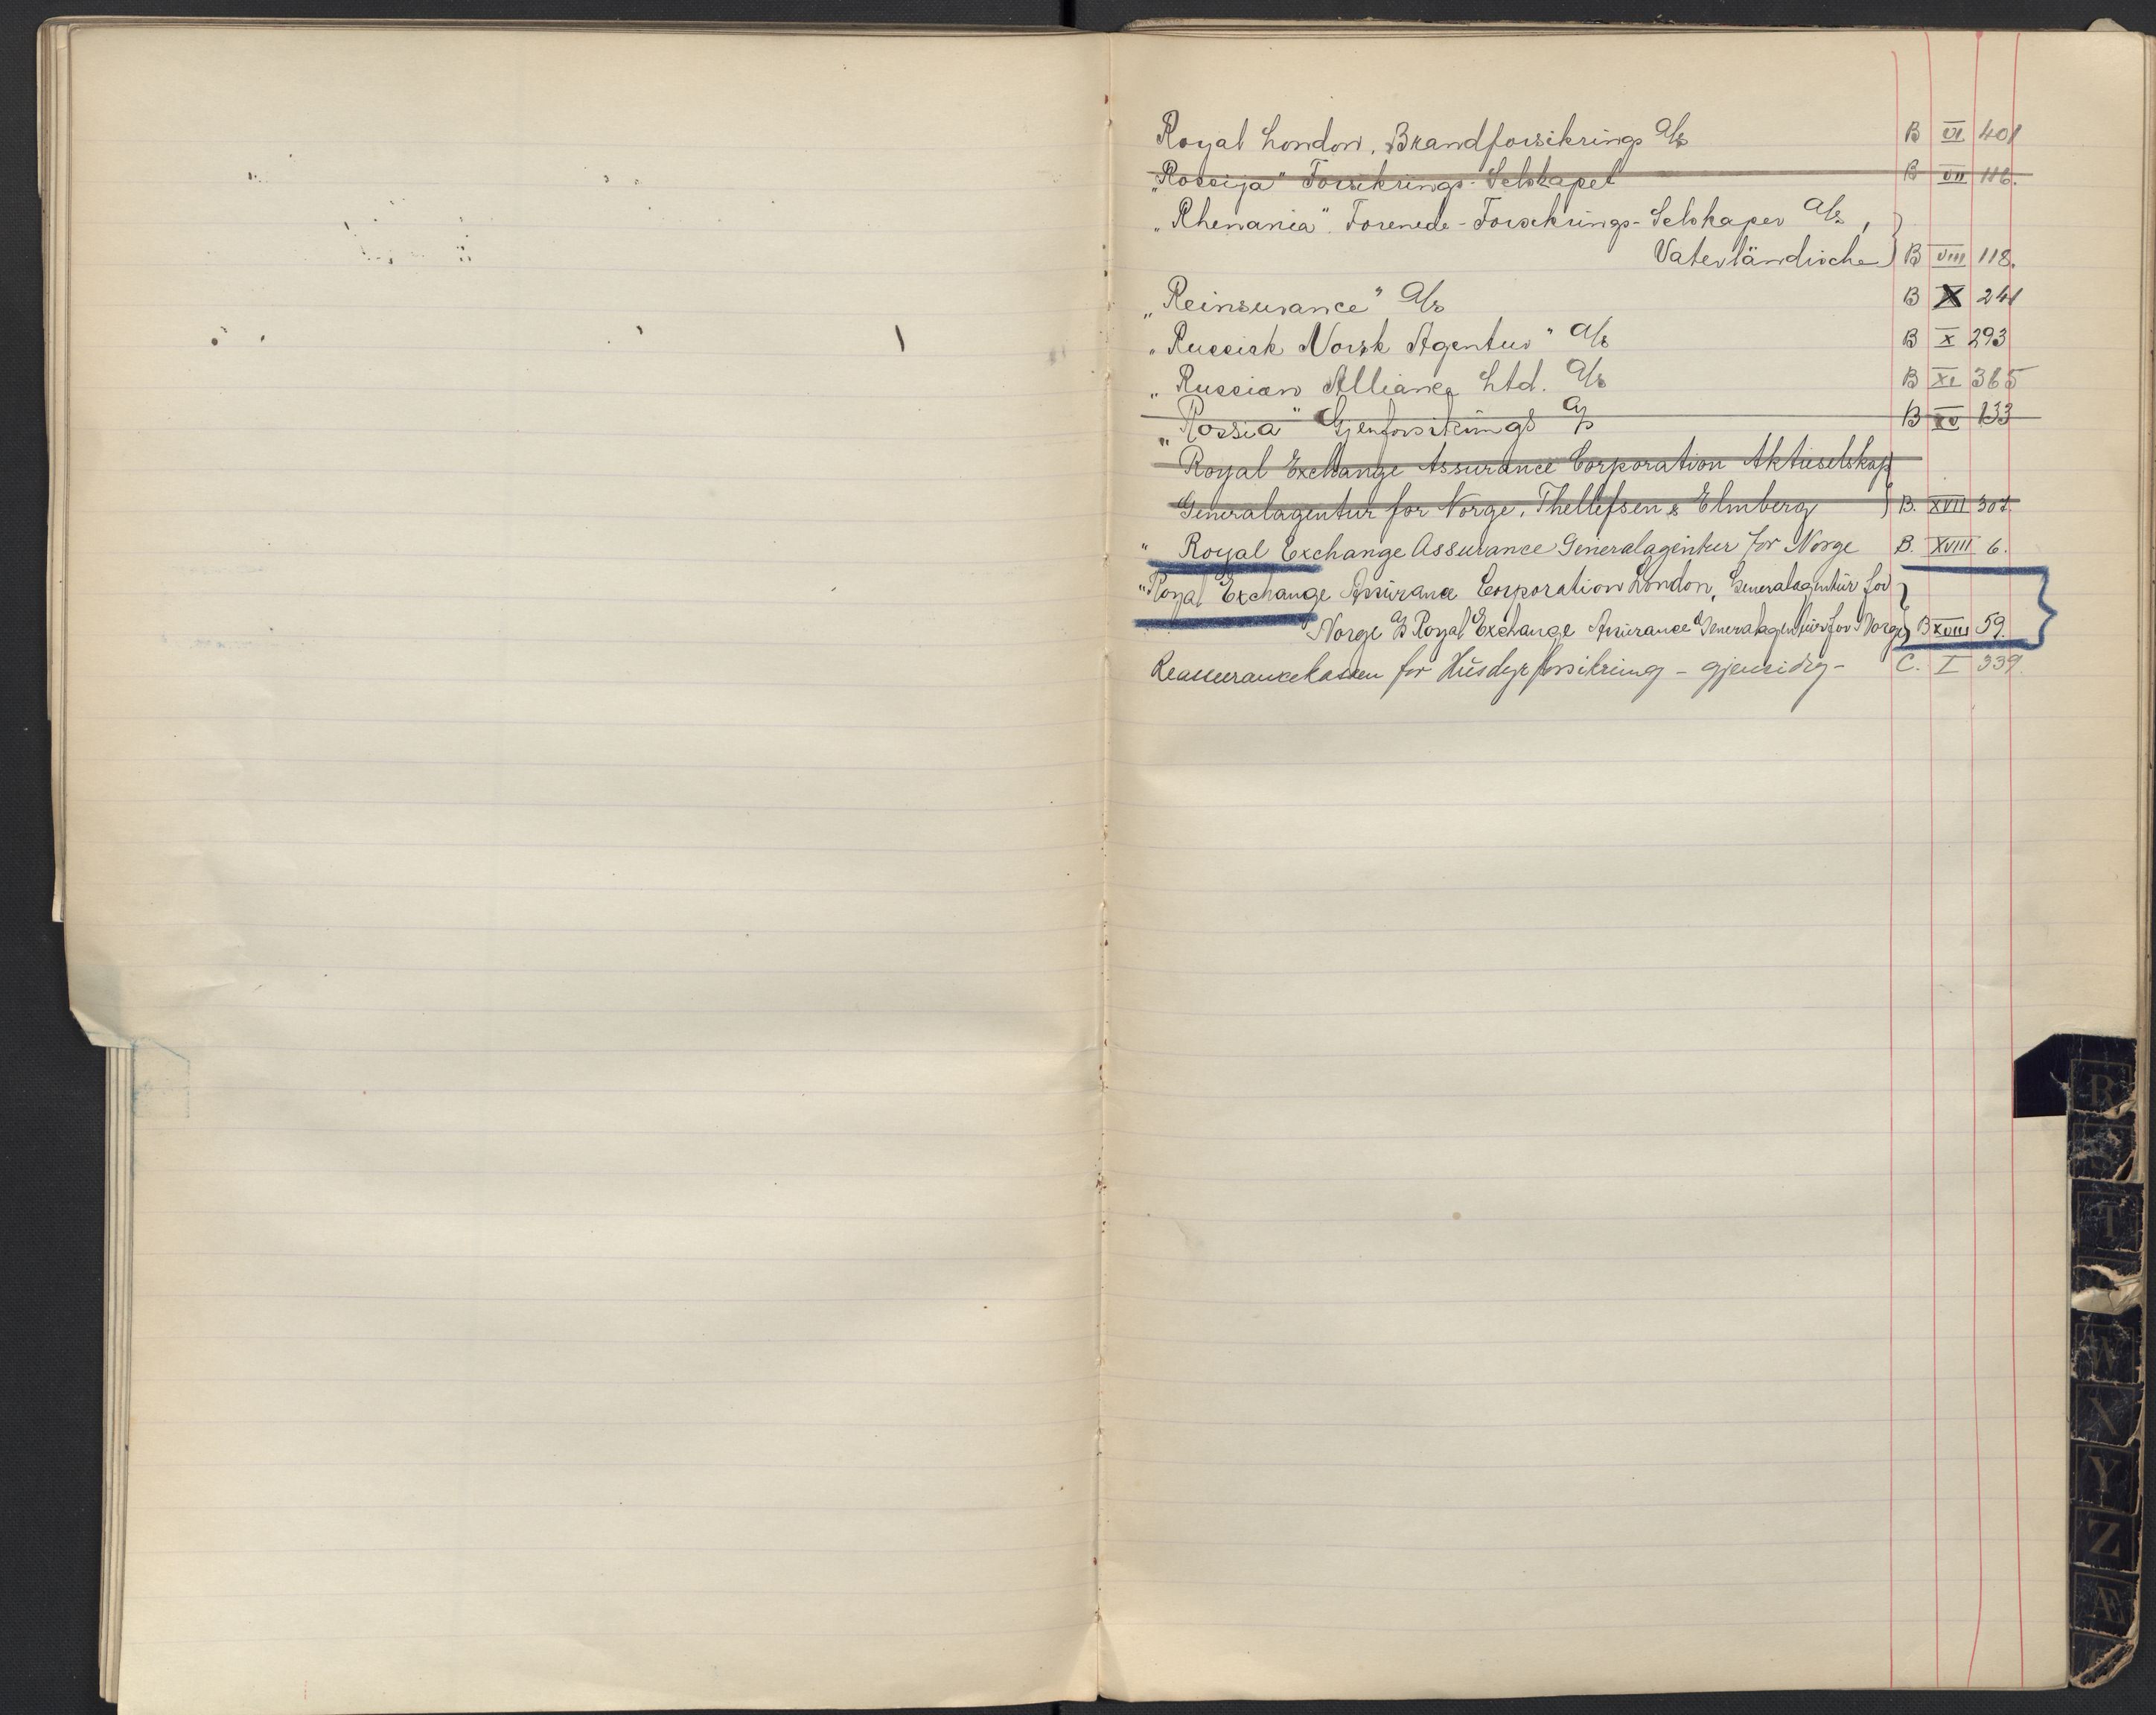 Royal London, Brandforsikrings A/s B VI 401
"Rossija" Forsikrings-Selskapet B VII 116.
"Rhenania" Forenede-Forsikrings-Selskaper A/s,
Vaterländische } B VIII 118.
"Reinsurance" A/s B X 241
"Russisk Norsk Agentur" A/s B X 293
"Russian Alliance Ltd. A/s B XI 365
"Rossia" Gjenforsikrings A/s B XV 133
Royal Exchange Assurance Corporation Aktieselskap
Generalagentur for Norge, Thellefsen & Elmberg } B. XVII 307.
" Royal Exchange Assurance Generalagentur for Norge B. XVIII 6.
"Royal Exchange Assurance Corporation London, Generalagentur for
Norge A/s Royal Exchange Assurance Generalagentur for Norge } B XVIII 59.
Reassurancekassen for Husdyrforsikring - gjensidig - C. I 339.
R
S
T
W
X
Y
Z
Æ